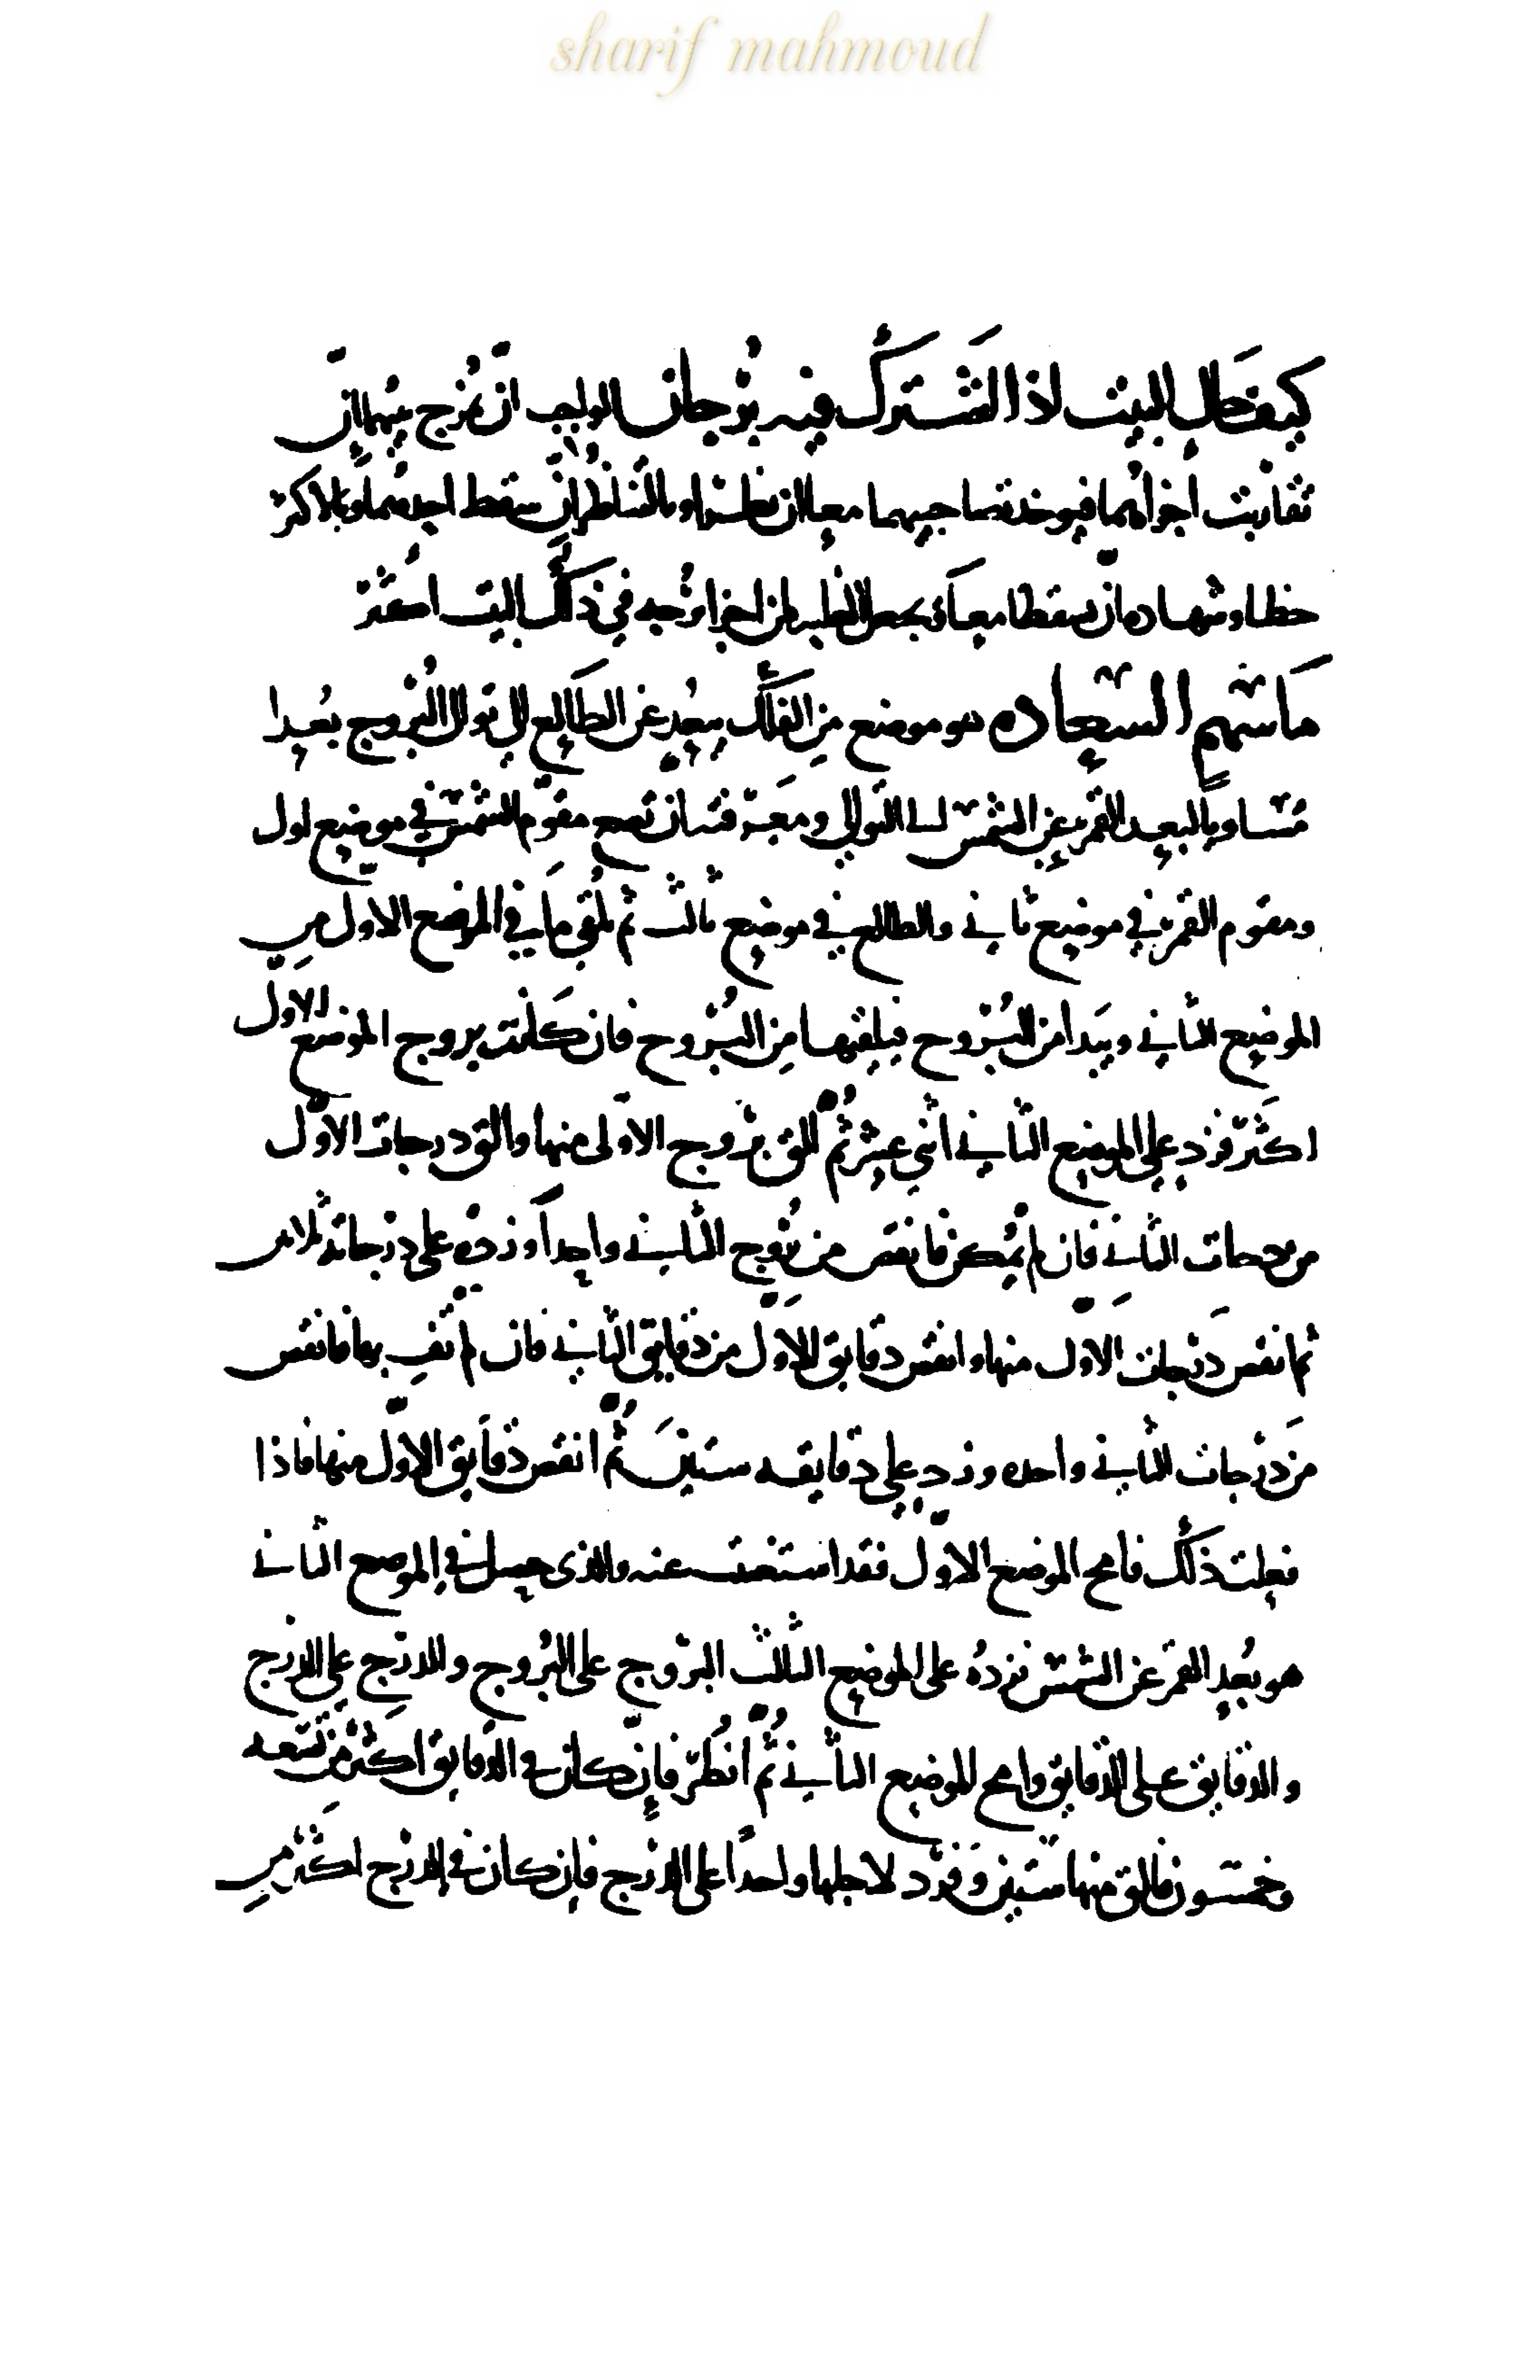 sharif mahmoud
كيف حال البيت اذا اشترك فيه برجان الواجب ان يمزج بينهما ان
تقاربت اجزاؤهما فيوخذ صاحبيهما معا ان بالتناظر ان سقط احدهما وبالاكثر
حظا وشهاده ان سقطا معا في ذلك البيت اكثر
ما سهم السعاده هو موضع من الفلك بعده عن الطالع الى توالى البروج بعدا
مساويا لبعد القمر عن الشمس الى التوالى ومعرفته ان تضع مقوم الشمس في موضع اول
ومقوم القمر في موضع ثاني والطالع في موضع ثالث ثم تلقى ما في الموضع الاول من
الموضع الثاني وتبدا من البروج فتلقيها من البروج فان كانت بروج الموضع الاول
اكثر فزد على الموضع الثاني اثني عشر ثم الق بروج الاولى منها والق درجات الاول
من درجات الثاني فان لم يمكن فانقص من بروج الثاني واحدا وزده على درجاته ثلاثين
ثم انقص درجات الاول منها وانقص دقايق الاول من دقايق الثاني فان لم تف بها فانقص
من درجات الثاني واحده وزد على دقايقه ستين ثم انقص دقايق الاول منها فاذا
فعلت ذلك فامح الموضع الاول فقد استغنيت عنه والذي حصل في الموضع الثاني
هو بعد القمر عن الشمس فزده على الموضع الثالث البروج على البروج والدرج على الدرج
والدقايق على الدقايق وامح الموضع الثاني ثم انظر فان كان في الدقايق اكثر من تسعه
وخمسون فالق منها ستين وفزد لاجلها واحدا على الدرج فان كان في الدرج اكثر من